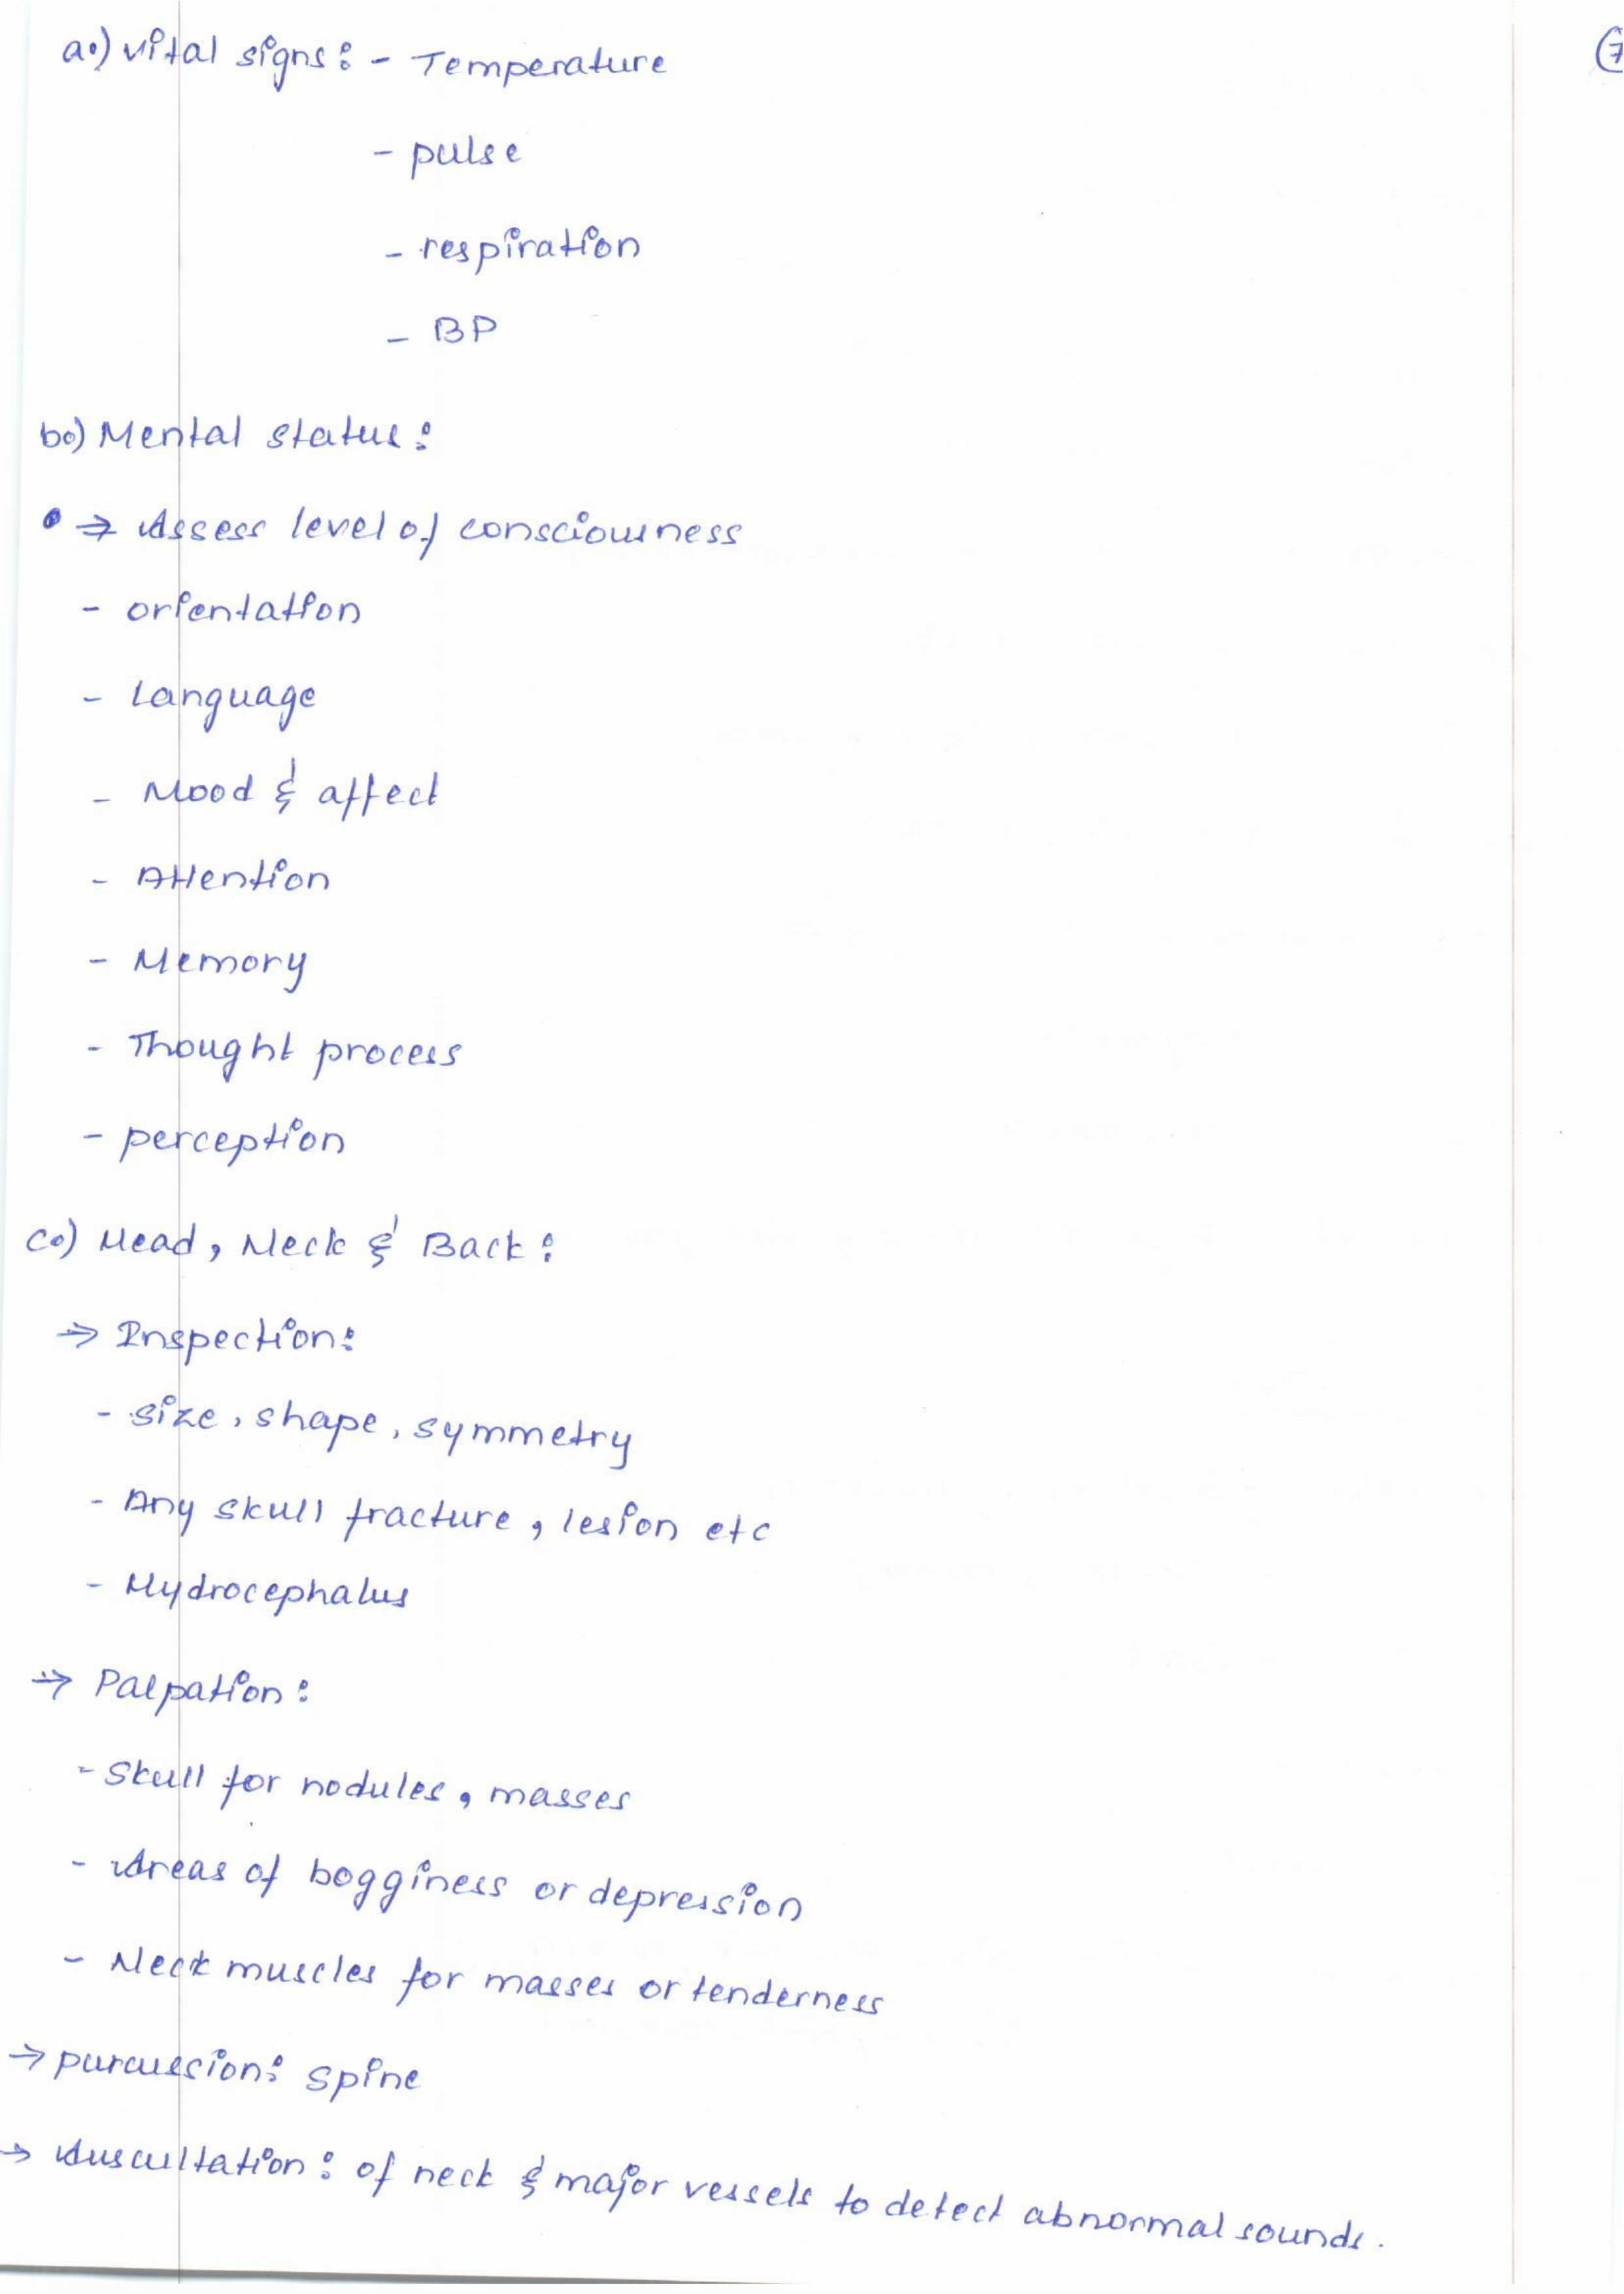 a.) Vital signs: - Temperature
7
- pulse
- respiration
- BP
b.) Mental status:
• → Assess level of consciousness
- orientation
- Language
- Mood & affect
- Attention
- Memory
- Thought process
- perception
c.) Head, Neck & Back:
→ Inspection:
- size, shape, symmetry
- Any skull fracture, lesion etc
- Hydrocephalus
→ Palpation:
- Skull for nodules, masses
- Areas of bogginess or depression
- Neck muscles for masses or tenderness
→ purcussion: spine
→ Auscultation: of neck & major vessels to detect abnormal sounds.